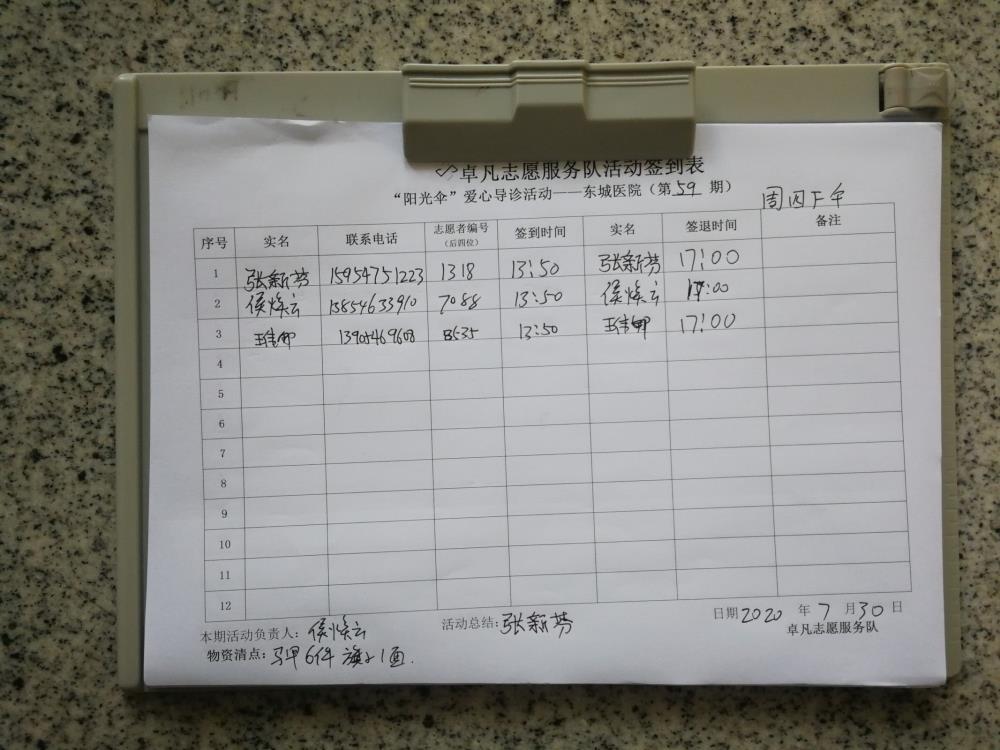 卓凡志愿服务队活动签到表
“阳光伞”爱心导诊活动——东城医院（第59期）
周四下午
序号 实名 联系电话 志愿者编号（后四位） 签到时间 实名 签退时间 备注
1 张新芳 15954751223 1318 13:50 张新芳 17:00
2 侯焕云 15854633910 7088 13:50 侯焕云 17:00
3 13905469608 8535 13:50 17:00
4
5
6
7
8
9
10
11
12
日期2020年7月30日
本期活动负责人：侯焕云 活动总结：张新芳
卓凡志愿服务队
物资清点：马甲6件 旗子1面.